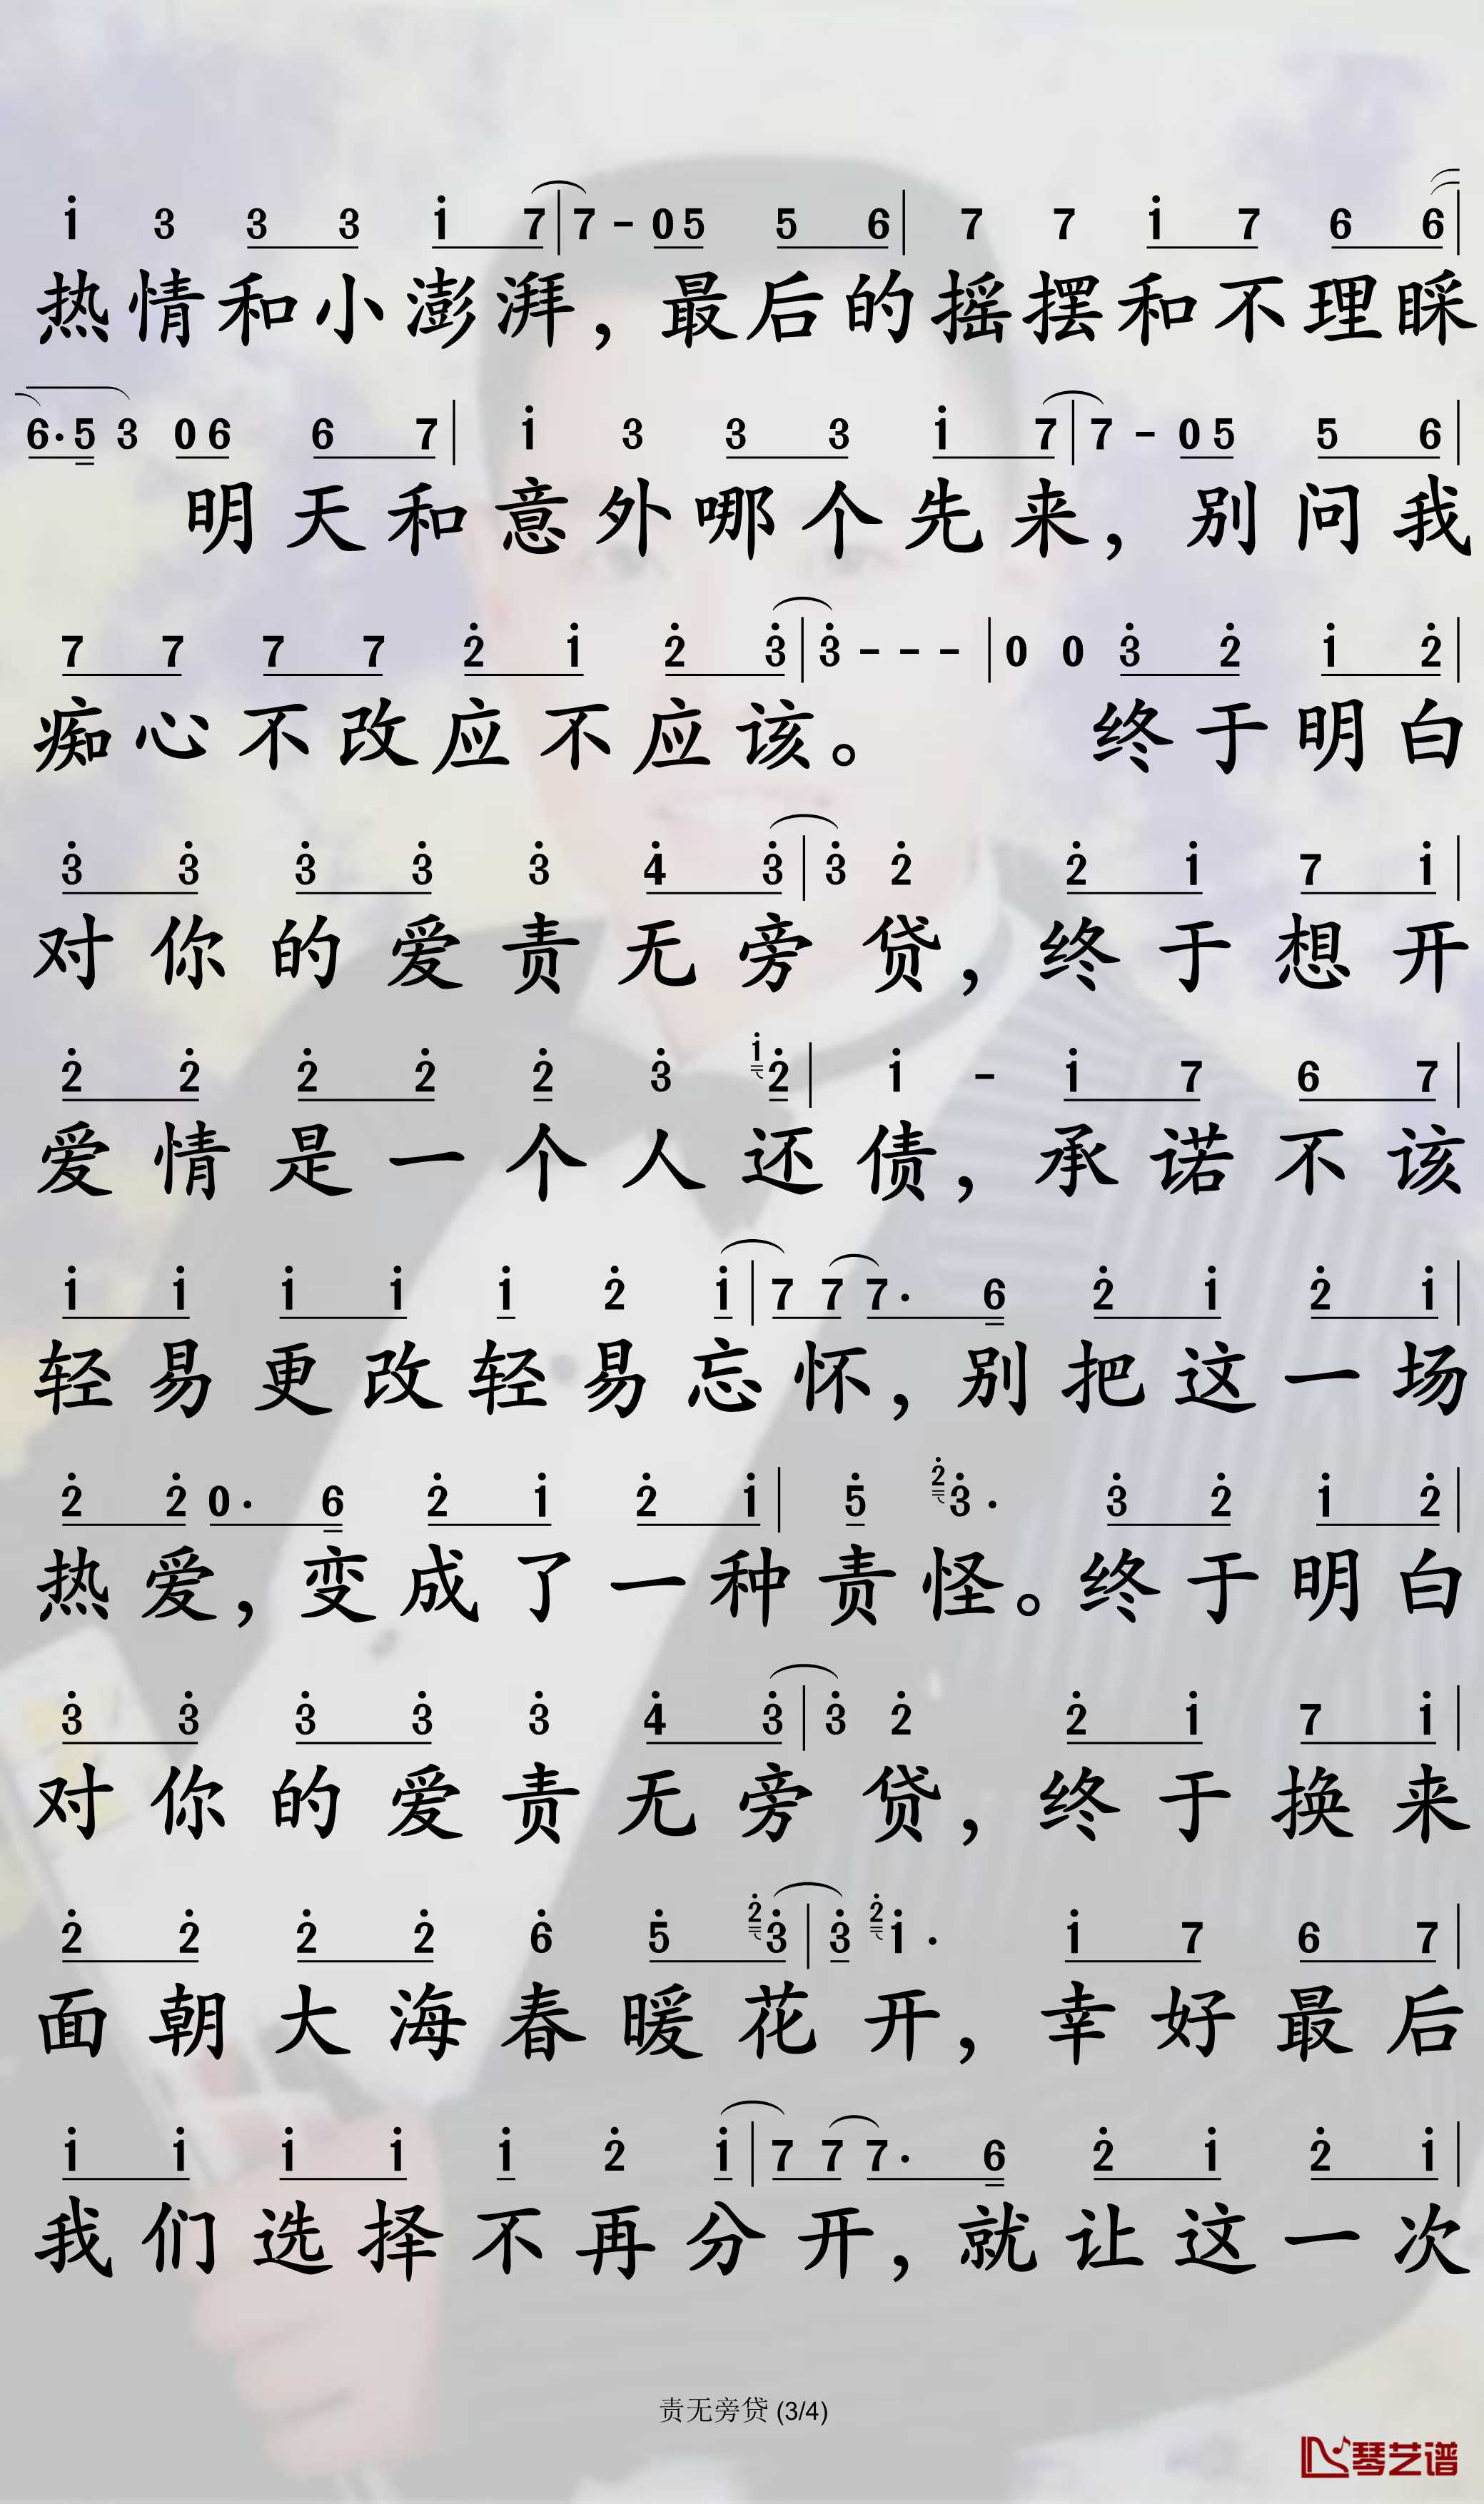 i 3 3 3 i 7 | 7 - 0 5 5 6 | 7 7 i 7 6 6 |
热情和小澎湃，最后的摇摆和不理睬
6· 5 3 0 6 6 7 | i 3 3 3 i 7 | 7 - 0 5 5 6 |
明天和意外哪个先来，别问我
7 7 7 7 2̇ i 2̇ 3̇ | 3̇ - - - | 0 0 3̇ 2̇ i 2̇ |
痴心不改应不应该。 终于明白
3̇ 3̇ 3̇ 3̇ 3̇ 4̇ 3̇ | 3̇ 2̇ 2̇ i 7 i |
对你的爱责无旁贷，终于想开
2̇ 2̇ 2̇ 2̇ 2̇ 3̇ i 2̇ | i - i 7 6 7 |
爱情是一个人还债，承诺不该
i i i i i 2̇ i | 7 7 7· 6 2̇ i 2̇ i |
轻易更改轻易忘怀，别把这一场
2̇ 2̇ 0· 6 2̇ i 2̇ i | 5̇ 2̇ 3̇· 3̇ 2̇ i 2̇ |
热爱，变成了一种责怪。终于明白
3̇ 3̇ 3̇ 3̇ 3̇ 4̇ 3̇ | 3̇ 2̇ 2̇ i 7 i |
对你的爱责无旁贷，终于换来
2̇ 2̇ 2̇ 2̇ 6̇ 5̇ 2̇ 3̇ | 3̇ 2̇ i· i 7 6 7 |
面朝大海春暖花开，幸好最后
i i i i i 2̇ i | 7 7 7· 6 2̇ i 2̇ i |
我们选择不再分开，就让这一次
责无旁贷 (3/4)
琴艺谱